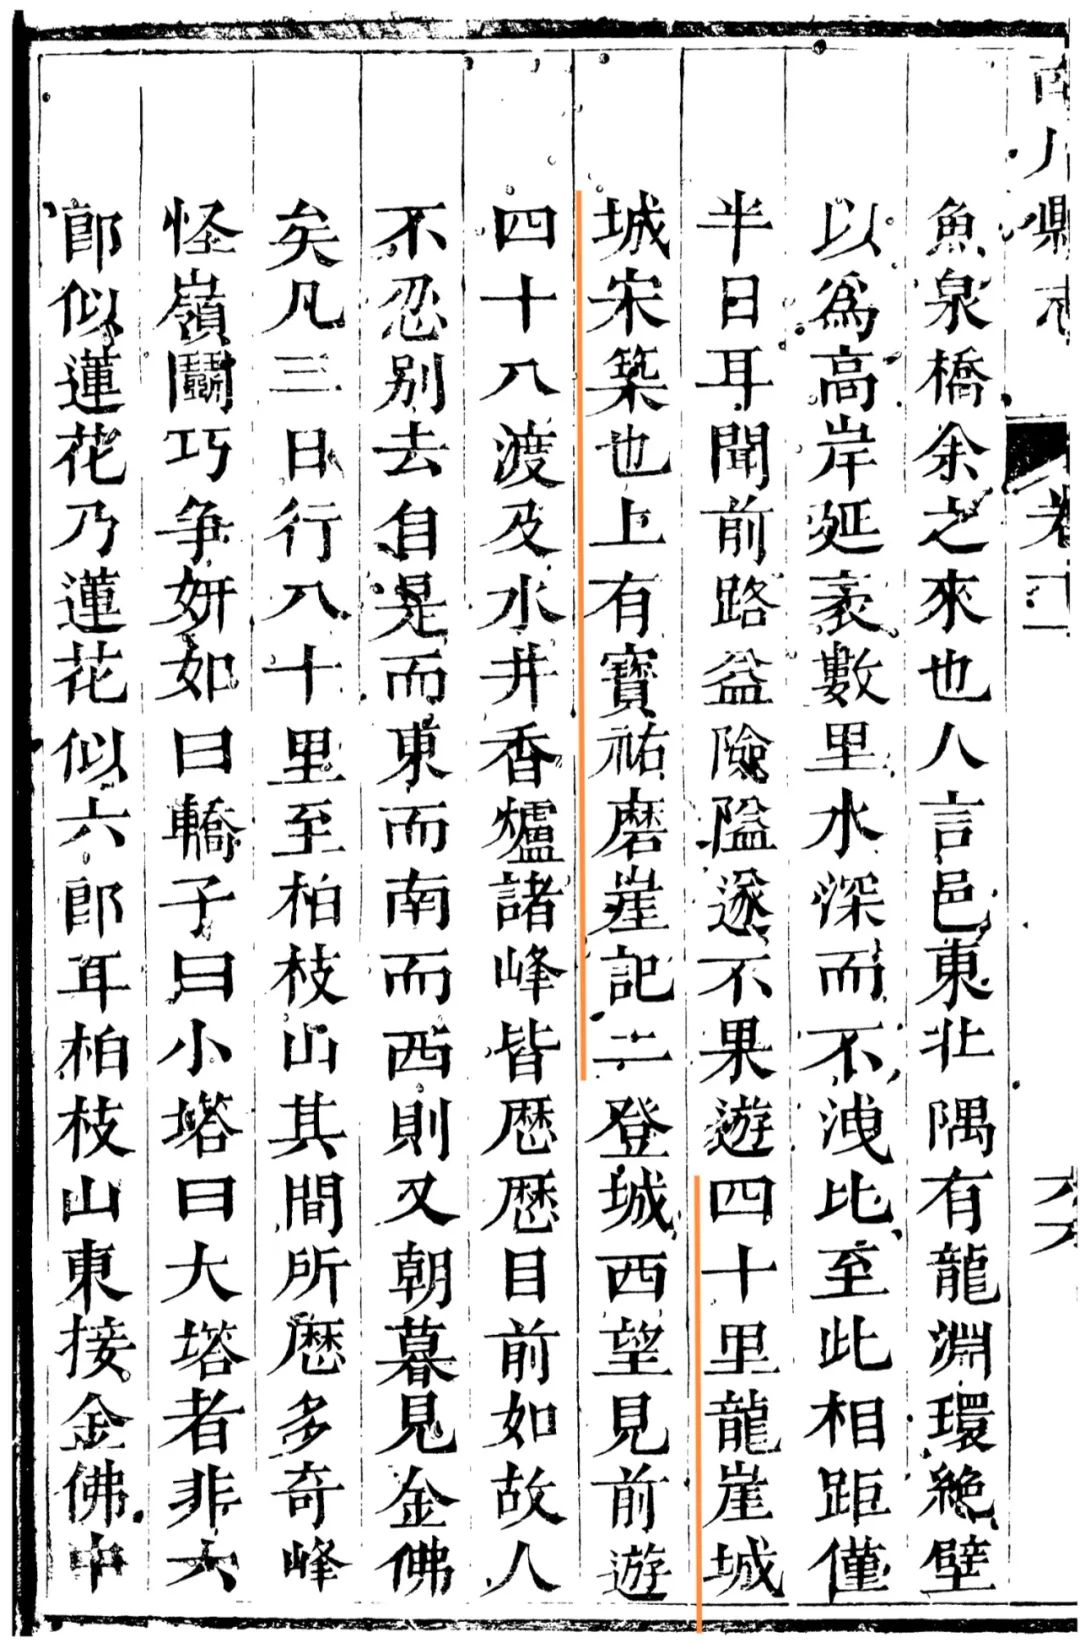 魚泉橋余之來也人言邑東北隅有龍淵環絶壁
以爲高岸延袤數里水深而不洩比至此相距僅
半日耳聞前路益險隘遂不果遊四十里龍崖城
城宋築也上有寶祐磨崖記二登城西望見前遊
四十八渡及水井香爐諸峰皆歷歷目前如故人
不忍别去自是而東而南而西則又朝暮見金佛
矣凡三日行八十里至柏枝山其間所歷多奇峰
怪嶺鬭巧争妍如曰轎子曰小塔曰大塔者非六
郎似蓮花乃蓮花似六郎耳柏枝山東接金佛中